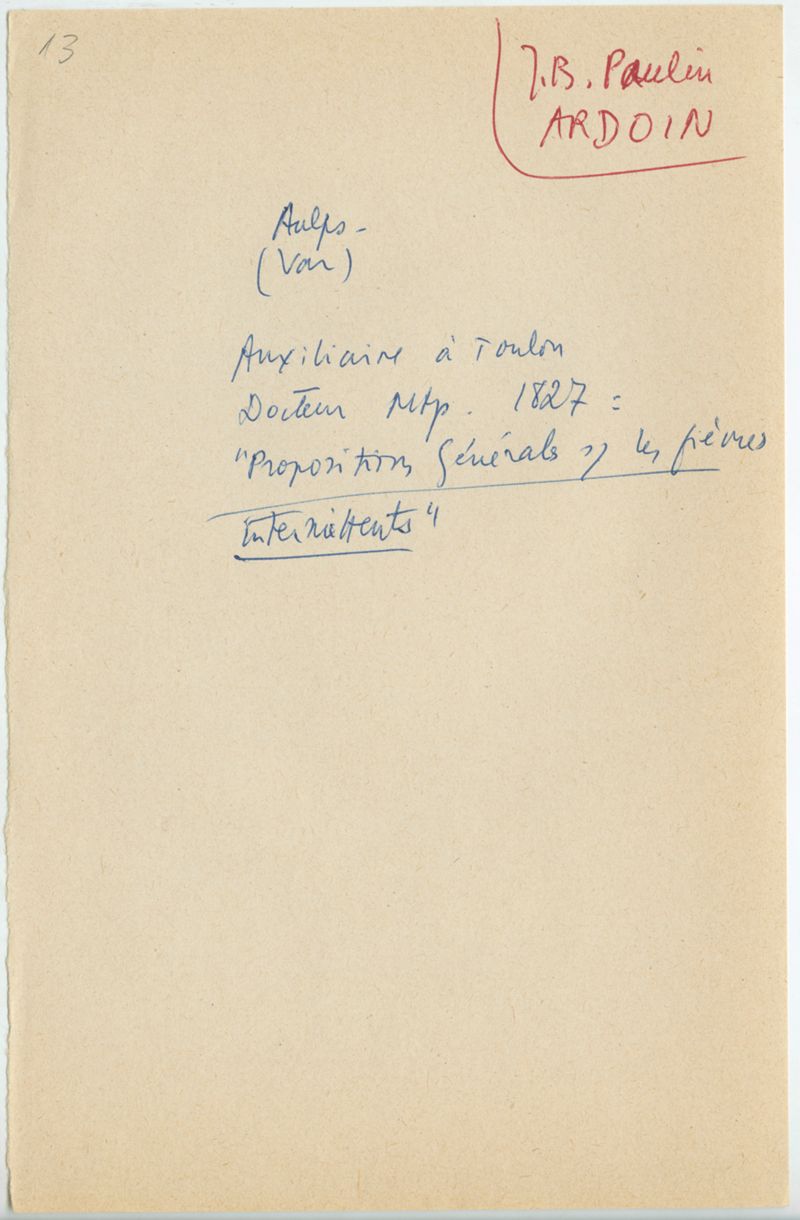 13
J.B. Paulin
ARDOIN
Aulps -
(Var)
Auxiliaire à Toulon
Docteur Mtp. 1827 :
"Propositions Générales s/ les fièvres
intermittents"